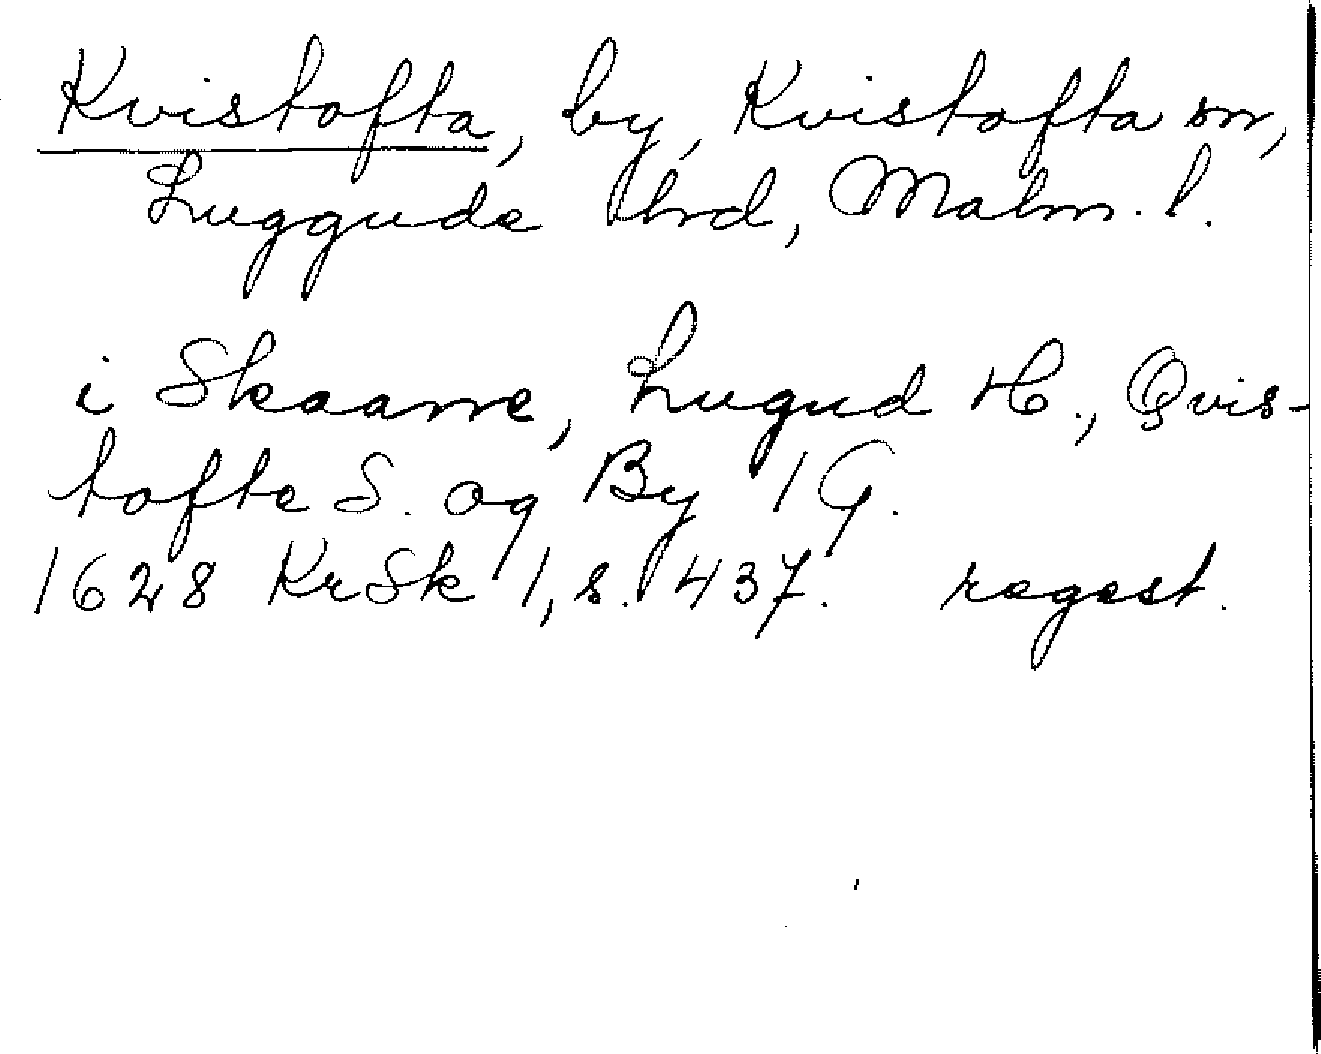 Kvistofta, by, Kvistofta sn,
Luggude hrd, Malm. l.
i Skaane, Lugud H., Qvis-
tofte S. og By 1 G.
1628 KrSk 1, s. 437. regest.